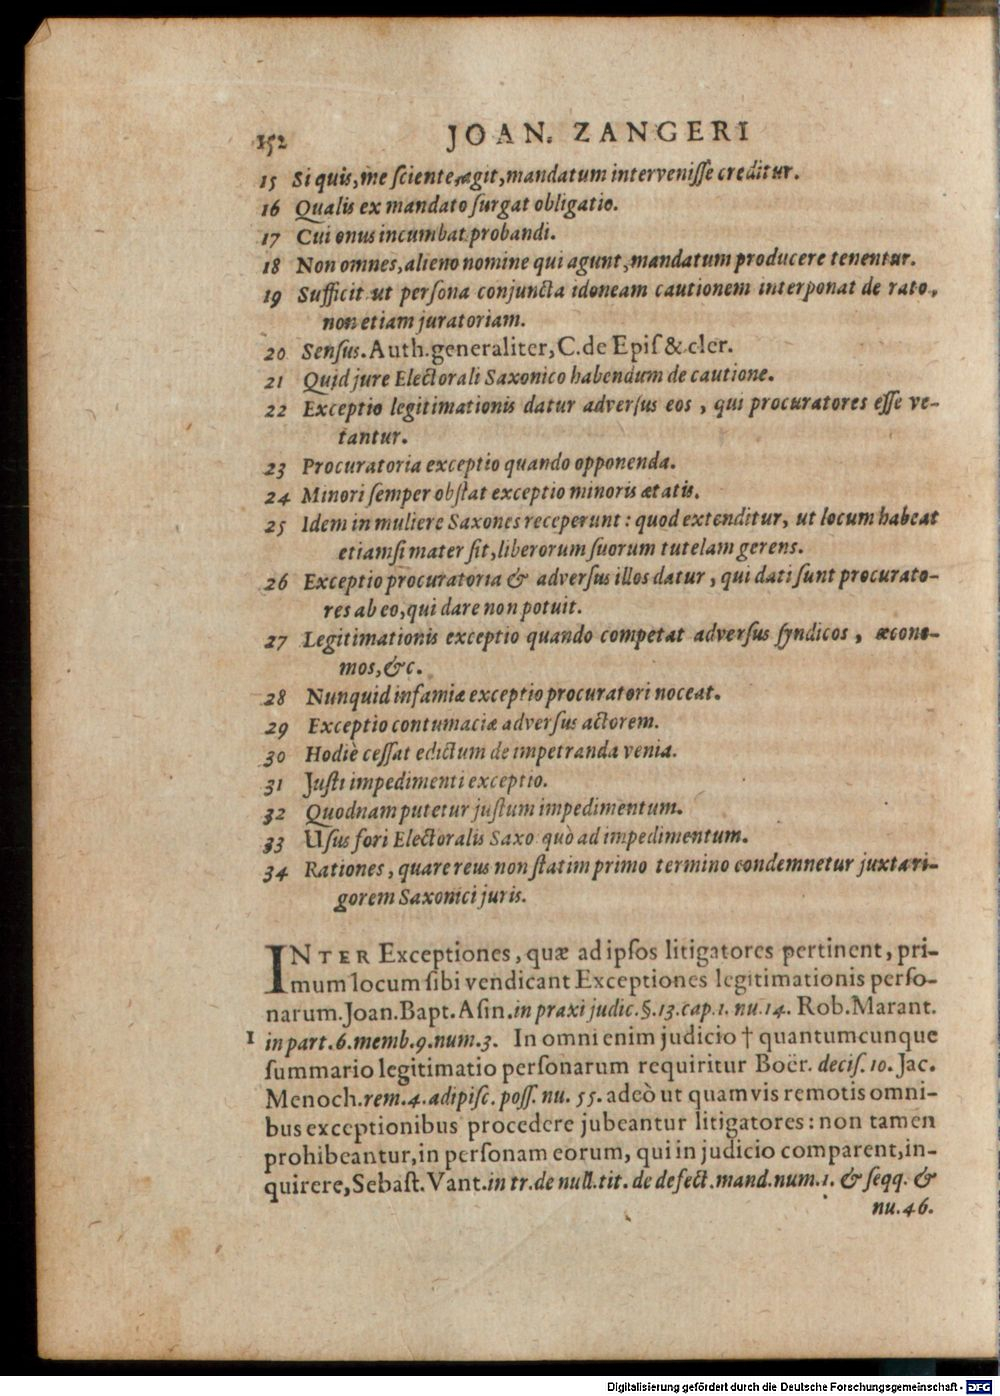 152 JOAN. ZANGERI
15 Si quis, me ſciente, agit, mandatum interveniſſe creditur.
16 Qualis ex mandato ſurgat obligatio.
17 Cui onus incumbat probandi.
18 Non omnes, alieno nomine qui agunt, mandatum producere tenentur.
19 Sufficit ut perſona conjuncta idoneam cautionem interponat de rato,
non etiam juratoriam.
20 Senſus. Auth. generaliter, C. de Epiſ & cler.
21 Quid jure Electorali Saxonico habendum de cautione.
22 Exceptio legitimationis datur adverſus eos, qui procuratores eſſe ve-
tantur.
23 Procuratoria exceptio quando opponenda.
24 Minori ſemper obſtat exceptio minoris ætatis.
25 Idem in muliere Saxones receperunt: quod extenditur, ut locum habeat
etiamſi mater ſit, liberorum ſuorum tutelam gerens.
26 Exceptio procuratoria & adverſus illos datur, qui dati ſunt procurato-
res ab eo, qui dare non potuit.
27 Legitimationis exceptio quando competat adverſus ſyndicos, œcono-
mos, &c.
28 Nunquid infamiæ exceptio procuratori noceat.
29 Exceptio contumaciæ adverſus actorem.
30 Hodiè ceſſat edictum de impetranda venia.
31 Juſti impedimenti exceptio.
32 Quodnam putetur juſtum impedimentum.
33 Uſus fori Electoralis Saxo quò ad impedimentum.
34 Rationes, quare reus non ſtatim primo termino condemnetur juxta ri-
gorem Saxonici juris.
INTER Exceptiones, quæ ad ipſos litigatores pertinent, pri-
mum locum ſibi vendicant Exceptiones legitimationis perſo-
narum. Joan. Bapt. Aſin. in praxi judic. §. 13. cap. 1. nu. 14. Rob. Marant.
1 in part. 6. memb. 9. num. 3. In omni enim judicio † quantumcunque
ſummario legitimatio perſonarum requiritur Boër. deciſ. 10. Jac.
Menoch. rem. 4. adipiſc. poſſ. nu. 55. adeò ut quamvis remotis omni-
bus exceptionibus procedere jubeantur litigatores: non tamen
prohibeantur, in perſonam eorum, qui in judicio comparent, in-
quirere, Sebaſt. Vant. in tr. de null. tit. de defect. mand. num. 1. & ſeqq. &
nu. 46.
Digitalisierung gefördert durch die Deutsche Forschungsgemeinschaft - DFG